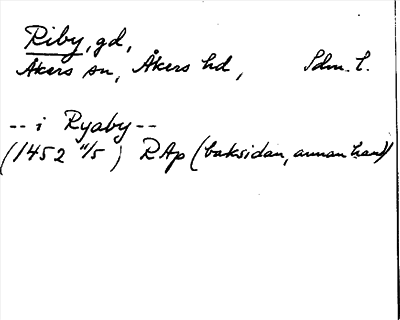 Riby, gd,
Åkers sn, Åkers hd, Sdm. l.
-- i Ryaby --
(1452 11/5) RAp (baksidan, annan hand)